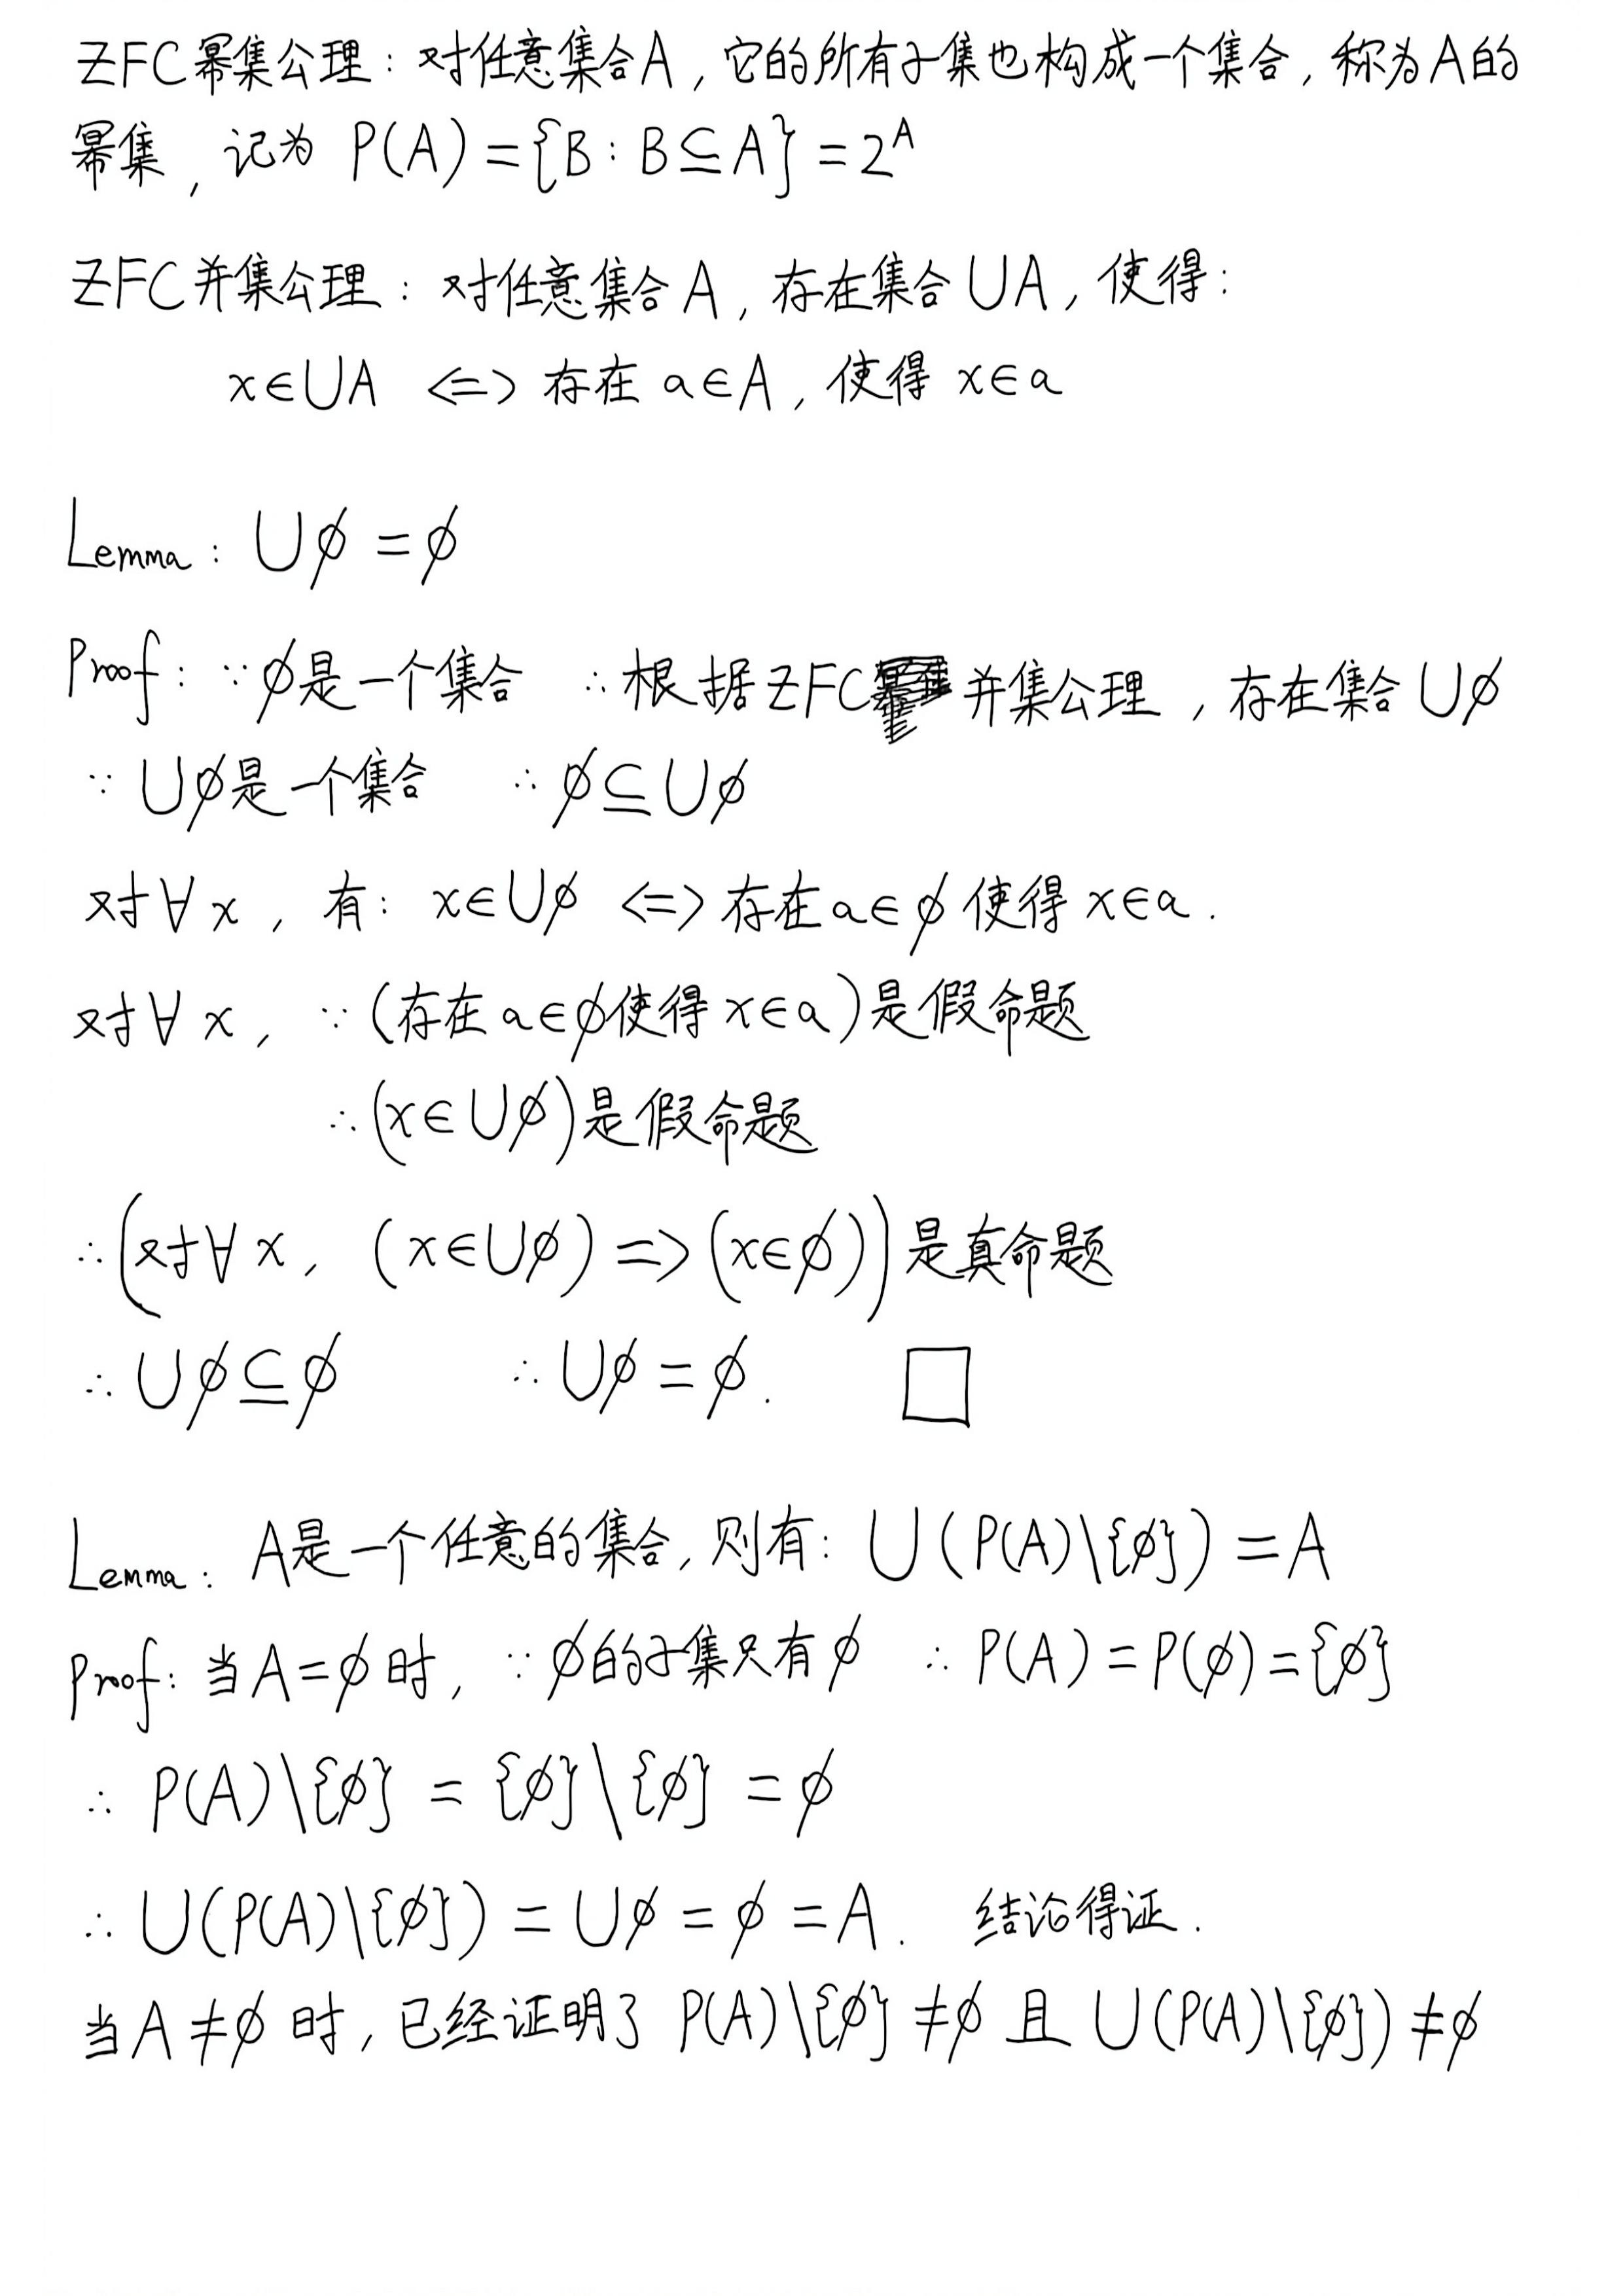 ZFC幂集公理：对任意集合A，它的所有子集也构成一个集合，称为A的
幂集，记为 P(A)={B:B⊆A}=2^A
ZFC并集公理：对任意集合A，存在集合∪A，使得：
x∈∪A <=> 存在 a∈A，使得 x∈a
Lemma: ∪∅=∅
Proof: ∵∅是一个集合 ∴根据ZFC并集公理，存在集合∪∅
∵∪∅是一个集合 ∴∅⊆∪∅
对∀x，有：x∈∪∅ <=> 存在a∈∅使得x∈a.
对∀x，∵(存在a∈∅使得x∈a)是假命题
∴(x∈∪∅)是假命题
∴(对∀x，(x∈∪∅)=>(x∈∅))是真命题
∴∪∅⊆∅ ∴∪∅=∅. □
Lemma: A是一个任意的集合，则有：∪(P(A)\{∅})=A
Proof: 当A=∅时，∵∅的子集只有∅ ∴P(A)=P(∅)={∅}
∴P(A)\{∅}={∅}\{∅}=∅
∴∪(P(A)\{∅})=∪∅=∅=A. 结论得证.
当A≠∅时，已经证明了 P(A)\{∅}≠∅ 且 ∪(P(A)\{∅})≠∅